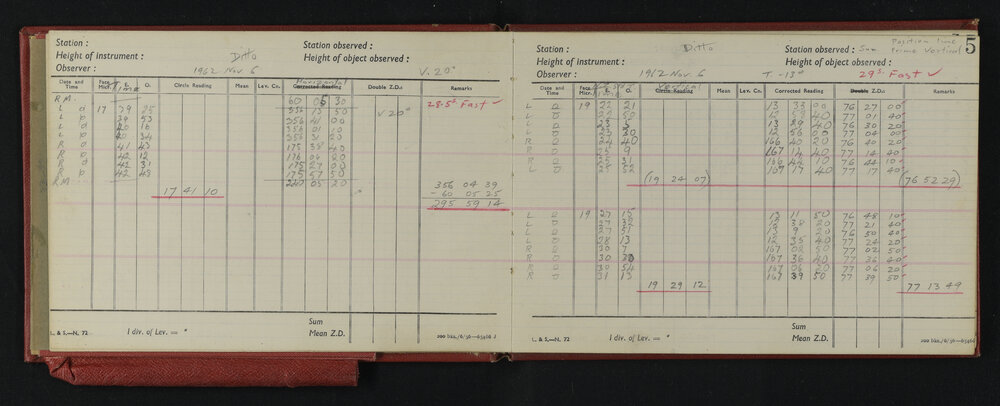 Station :
Station observed :
Height of instrument : Ditto
Height of object observed :
Observer : 1962 Nov. 6 V. 20°
Date and Time Face Micr. Time Circle Reading Mean Lev. Co. Horizontal Corrected Reading Double Z.D.: Remarks
R M. 60 05 30 28.5s Fast ✓
L 17 39 25 356 13 50 V 20°
L 39 53 356 41 00
L 20 16 356 01 10
L 20 34 356 31 20
R 41 43 175 38 40
R 42 12 176 06 20
R 42 31 175 27 00
R 42 43 175 57 50
R M 240 05 20 356 04 39
17 41 10 - 60 05 25
295 59 14
Sum
Mean Z.D.
L. & S.—N. 72 1 div. of Lev. = " 200 bks./6/56—65466 J
5
Station :
Station observed : Sun Position line Prime Vertical
Height of instrument : Ditto
Height of object observed :
Observer : 1962 Nov. 6 T -13° 29s. Fast ✓
Date and Time Face Micr. Vertical Circle Reading Mean Lev. Co. Corrected Reading Double Z.D.: Remarks
L 19 22 21 13 33 00 76 27 00
L 22 50 12 58 40 77 01 40
L 13 29 40 76 30 20
L 23 30 12 56 00 77 04 00
R 24 40 166 40 20 76 40 20
R 25 9 167 14 40 77 14 40
R 25 31 166 44 10 76 44 10
L 25 52 167 17 40 77 17 40
(19 24 07) (76 52 29)
L 19 27 15 13 11 50 76 48 10
L 27 32 12 38 20 77 21 40
L 27 51 13 9 20 76 50 40
L 28 13 12 35 40 77 24 20
R 30 7 167 02 50 77 02 50
R 30 167 36 40 77 36 40
R 30 54 167 06 20 77 06 20
R 31 13 167 39 50 77 39 50
19 29 12 77 13 49
Sum
Mean Z.D.
L. & S.—N. 72 1 div. of Lev. = " 200 bks./6/56—65466